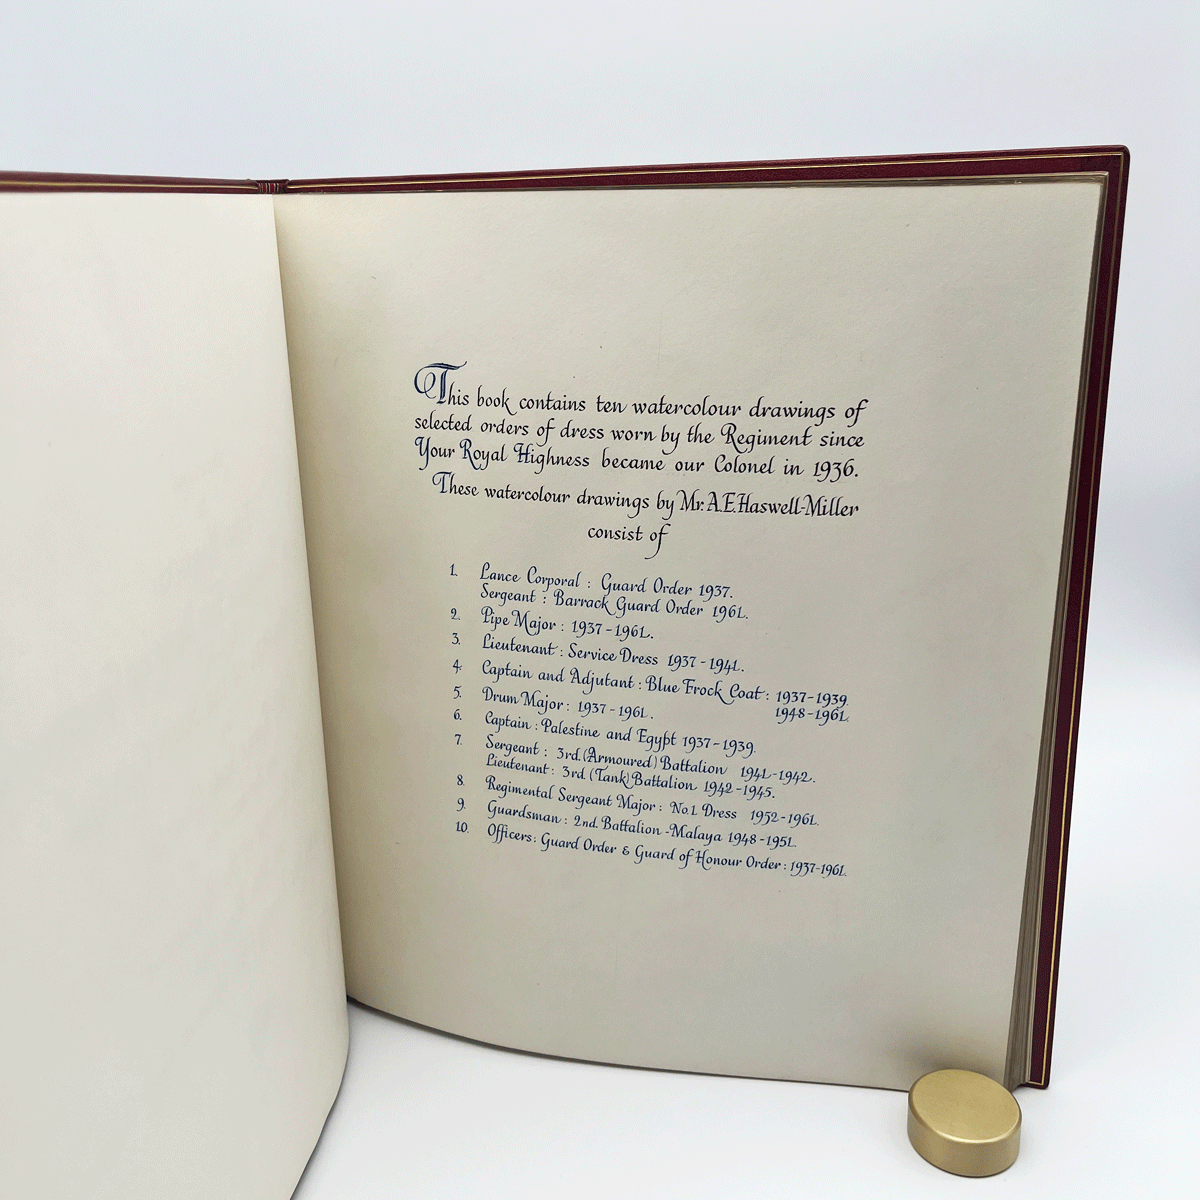 This book contains ten watercolour drawings of
selected orders of dress worn by the Regiment since
Your Royal Highness became our Colonel in 1936.
These watercolour drawings by Mr. A.E. Haswell-Miller
consist of
1. Lance Corporal : Guard Order 1937.
Sergeant : Barrack Guard Order 1961.
2. Pipe Major : 1937-1961.
3. Lieutenant : Service Dress 1937-1941.
4. Captain and Adjutant : Blue Frock Coat : 1937-1939.
1948-1961.
5. Drum Major : 1937-1961.
6. Captain : Palestine and Egypt 1937-1939.
7. Sergeant : 3rd. (Armoured) Battalion 1941-1942.
Lieutenant : 3rd. (Tank) Battalion 1942-1945.
8. Regimental Sergeant Major : No.1. Dress 1952-1961.
9. Guardsman : 2nd. Battalion - Malaya 1948-1951.
10. Officers : Guard Order & Guard of Honour Order : 1937-1961.